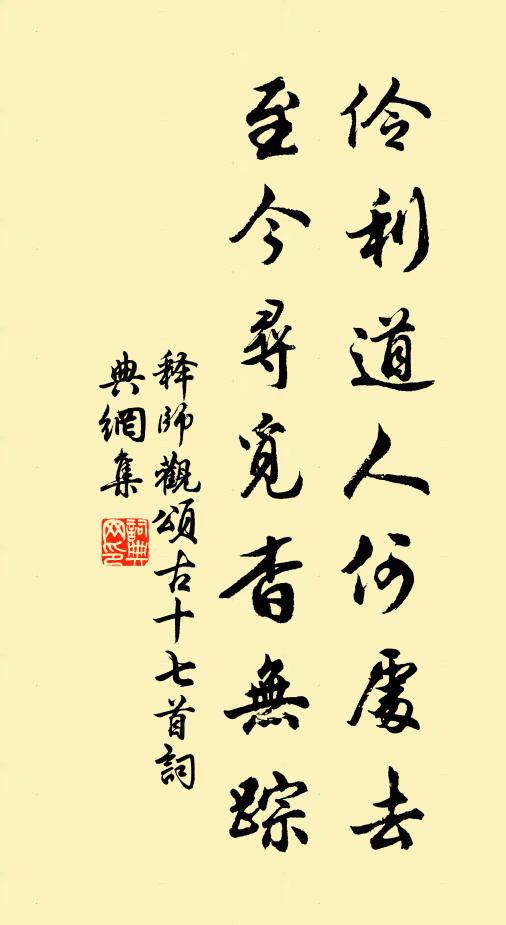 伶利道人何處去
至今尋覓杳無踪
释師觀頌古十七首詞
典網集
詞典
网印